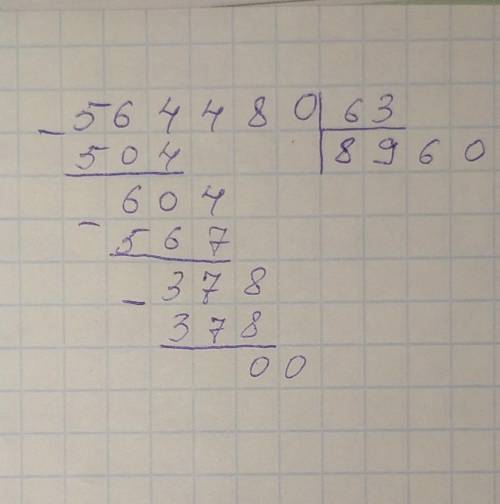 564480 63
504 8960
604
567
378
378
00